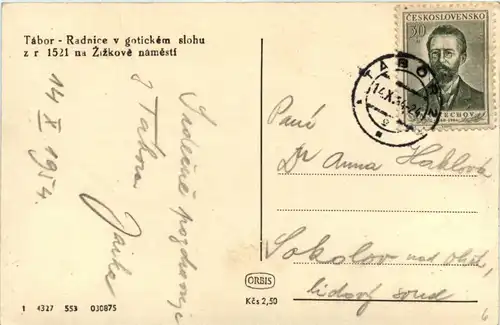 Tábor - Radnice v gotickém slohu
z r 1521 na Žižkově náměstí
14 X 1954.
Srdečně pozdravuje
z Tábora
ČESKOSLOVENSKO
30
TÁBOR
14.X.54-24
Paní
Dr Anna
Sokolov nad Ohří
lidový soud
ORBIS
Kčs 2,50
1 4327 553 030875
6